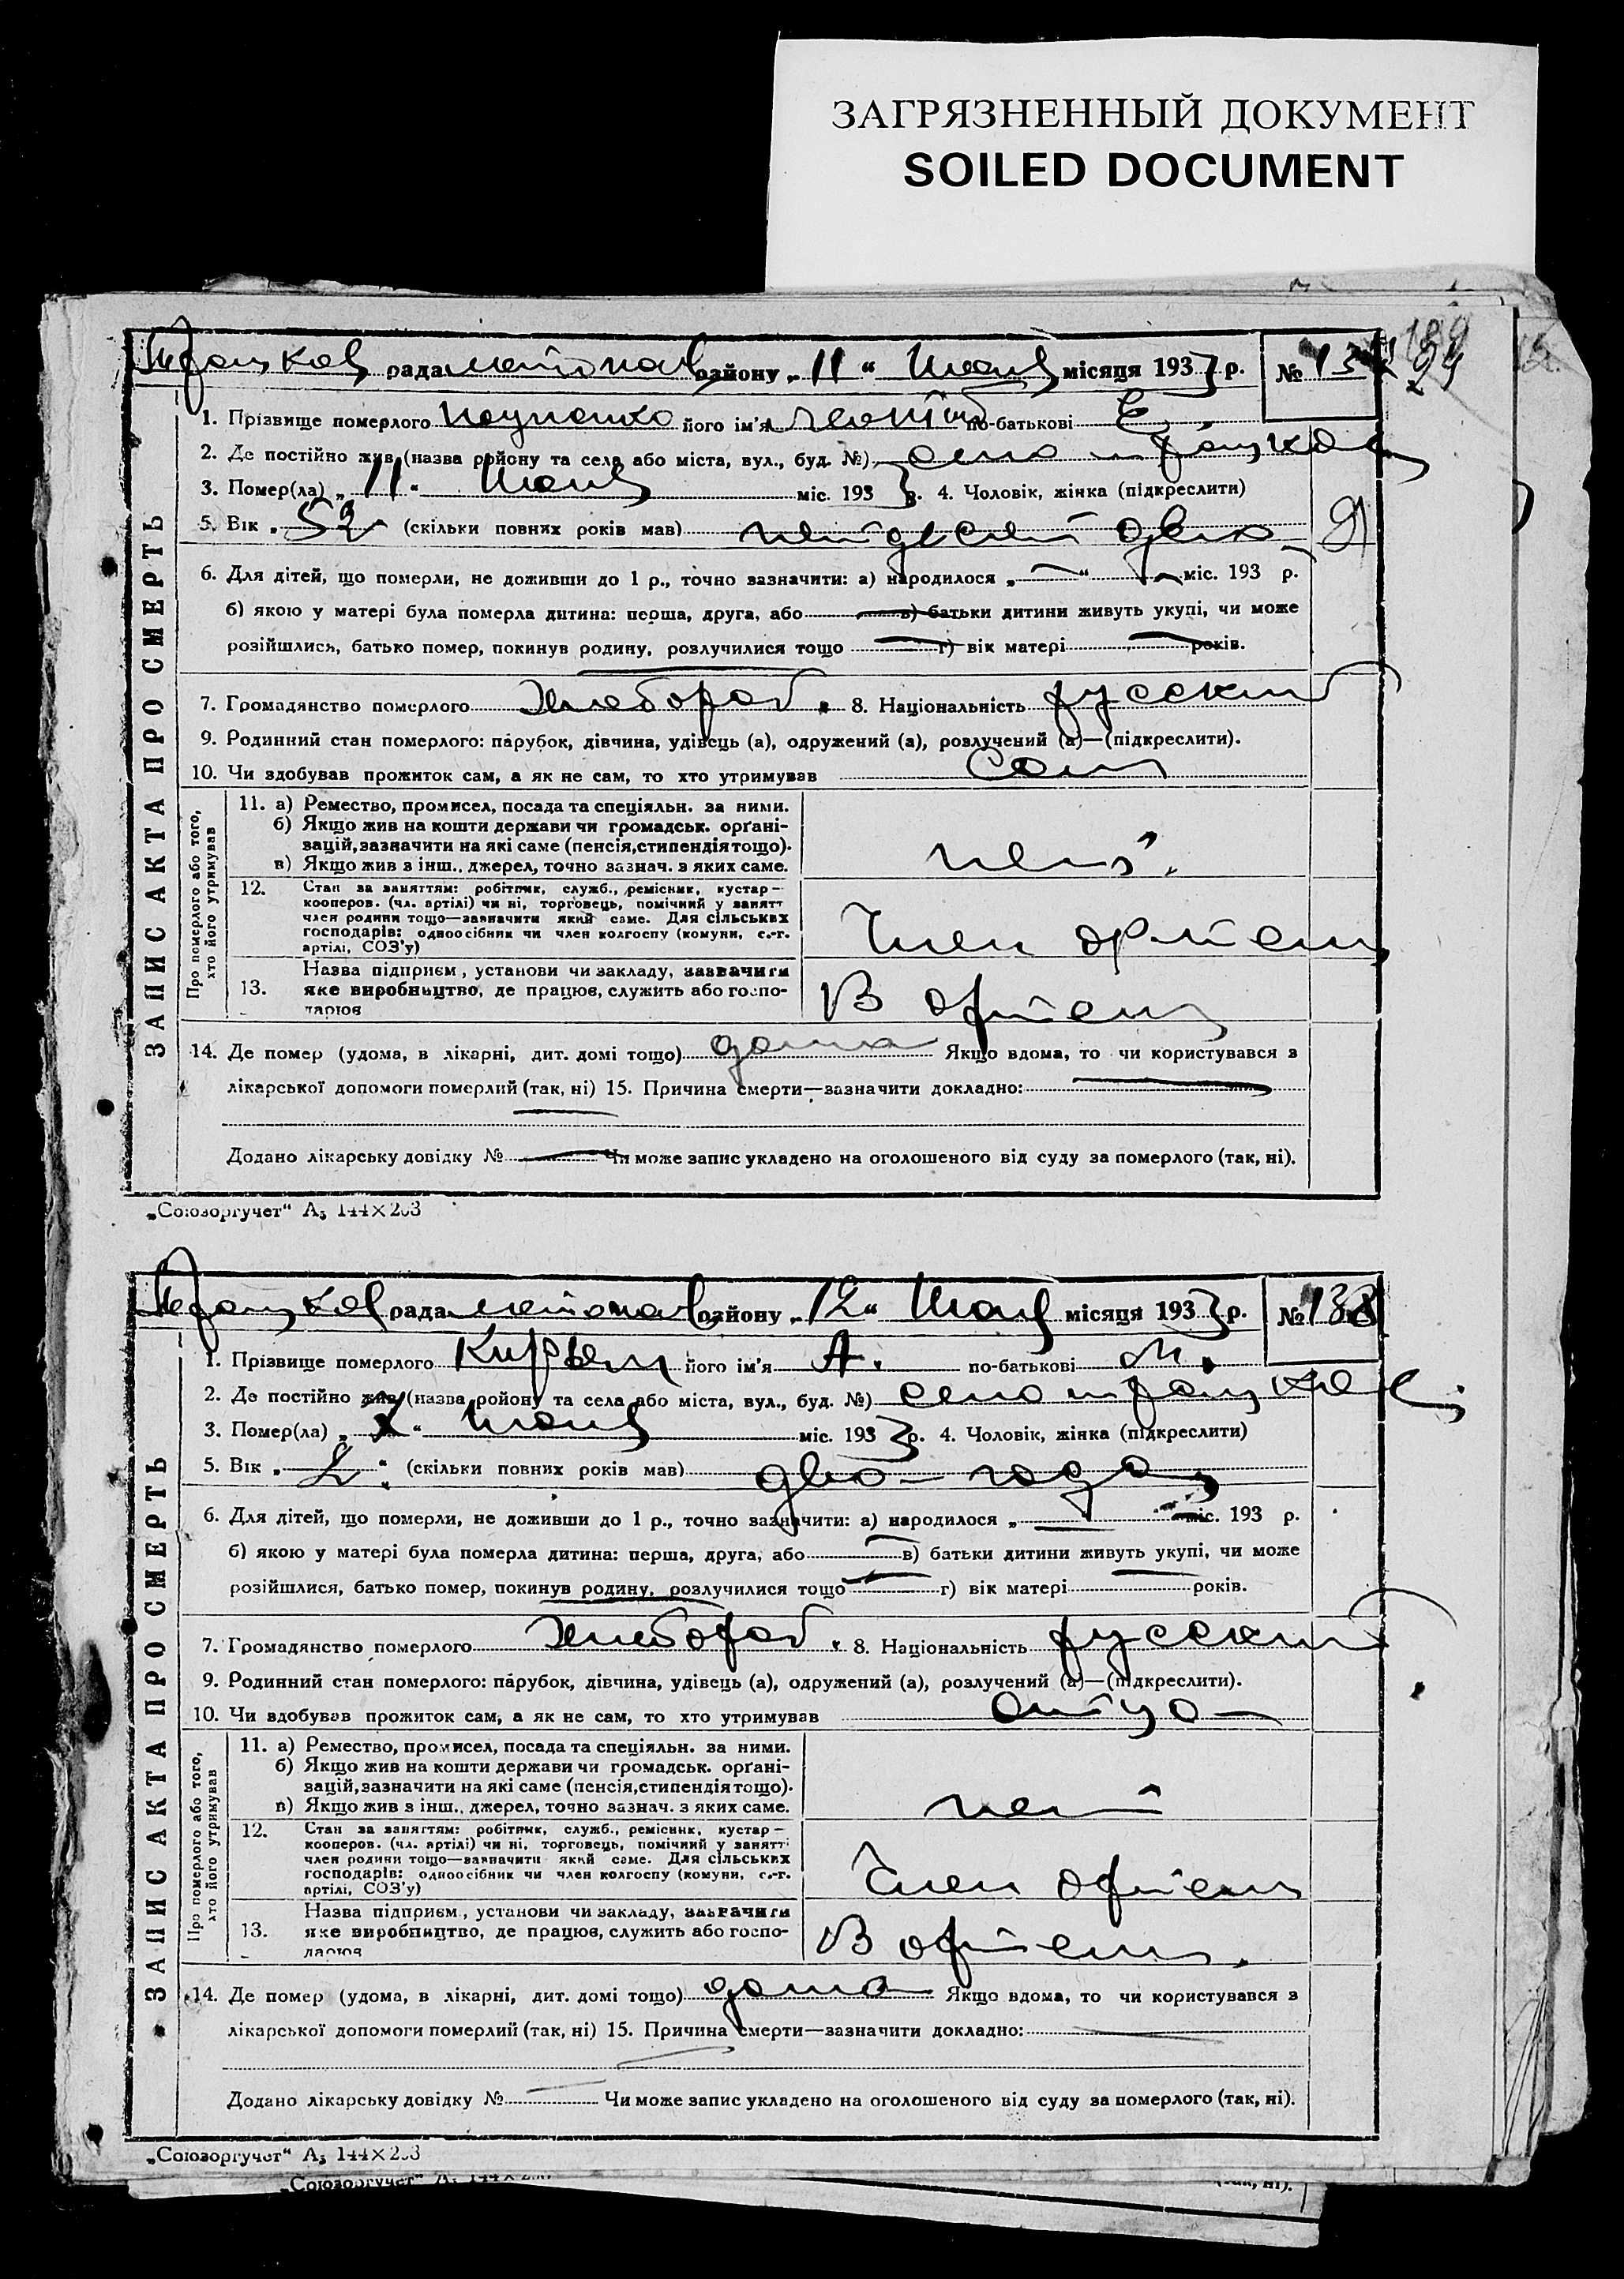 ЗАГРЯЗНЕННЫЙ ДОКУМЕНТ
SOILED DOCUMENT
рада району „11“ місяця 1933 р. №
1. Прізвище померлого його ім'я по-батькові
2. Де постійно жив (назва району та села або міста, вул., буд. №) село
3. Помер(ла) „11“ міс. 1933 р. 4. Чоловік, жінка (підкреслити)
5. Вік „52“ (скільки повних років мав)
6. Для дітей, що померли, не доживши до 1 р., точно зазначити: а) народилося „ “ міс. 193 р.
б) якою у матері була померла дитина: перша, друга, або в) батьки дитини живуть укупі, чи може
розійшлись, батько помер, покинув родину, розлучилися тощо г) вік матері років.
7. Громадянство померлого хлебороб. 8. Національність русский
9. Родинний стан померлого: парубок, дівчина, удівець (а), одружений (а), розлучений (а)—(підкреслити).
10. Чи здобував прожиток сам, а як не сам, то хто утримував Сам
11. а) Ремество, промисел, посада та спеціяльн. за ними.
б) Якщо жив на кошти держави чи громадськ. орґані-
зацій, зазначити на які саме (пенсія, стипендія тощо).
в) Якщо жив з інш., джерел, точно зазнач. з яких саме.
нет.
12. Стан за заняттям: робітник, служб., ремісник, кустар—
кооперов. (чл. артілі) чи ні, торговець, помічний у занятт
член родини тощо—зазначити який саме. Для сільських
господарів: одноосібник чи член колгоспу (комуни, с.-г.
артілі, СОЗ'у)
Член артели
13. Назва підприєм., установи чи закладу, зазначити
яке виробництво, де працює, служить або госпо-
дарює
В артели
14. Де помер (удома, в лікарні, дит. домі тощо) дома Якщо вдома, то чи користувався з
лікарської допомоги померлий (так, ні) 15. Причина смерти—зазначити докладно:
Додано лікарську довідку № Чи може запис укладено на оголошеного від суду за померлого (так, ні).
ЗАПИС АКТА ПРО СМЕРТЬ
Про померлого або того,
хто його утримував
„Союзоргучет“ А₅ 144×203
рада району „12“ місяця 1933 р. № 138
1. Прізвище померлого його ім'я А. по-батькові М.
2. Де постійно жив (назва району та села або міста, вул., буд. №) село
3. Помер(ла) „ “ міс. 1933 р. 4. Чоловік, жінка (підкреслити)
5. Вік „2“ (скільки повних років мав) два года
6. Для дітей, що померли, не доживши до 1 р., точно зазначити: а) народилося „ міс. 193 р.
б) якою у матері була померла дитина: перша, друга, або в) батьки дитини живуть укупі, чи може
розійшлися, батько помер, покинув родину, розлучилися тощо г) вік матері років.
7. Громадянство померлого хлебороб. 8. Національність русский
9. Родинний стан померлого: парубок, дівчина, удівець (а), одружений (а), розлучений (а)—(підкреслити).
10. Чи здобував прожиток сам, а як не сам, то хто утримував
11. а) Ремество, промисел, посада та спеціяльн. за ними.
б) Якщо жив на кошти держави чи громадськ. орґані-
зацій, зазначити на які саме (пенсія, стипендія тощо).
в) Якщо жив з інш., джерел, точно зазнач. з яких саме.
нет
12. Стан за заняттям: робітник, служб., ремісник, кустар—
кооперов. (чл. артілі) чи ні, торговець, помічний у занятті
член родини тощо—зазначити який саме. Для сільських
господарів: одноосібник чи член колгоспу (комуни, с.-г.
артілі, СОЗ'у)
Член артели
13. Назва підприєм., установи чи закладу, зазначити
яке виробництво, де працює, служить або госпо-
дарює
В артели.
14. Де помер (удома, в лікарні, дит. домі тощо) дома Якщо вдома, то чи користувався з
лікарської допомоги померлий (так, ні) 15. Причина смерти—зазначити докладно:
Додано лікарську довідку № Чи може запис укладено на оголошеного від суду за померлого (так, ні).
ЗАПИС АКТА ПРО СМЕРТЬ
Про померлого або того,
хто його утримував
„Союзоргучет“ А₅ 144×203
„Союзоргучет“